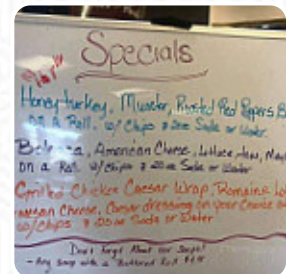 Specials
Honey turkey, Munster, Roasted Red Peppers, B
on a Roll. w/ Chips & 20oz Soda or Water
Bologna, American Cheese, Lettuce, Mayo
on a Roll w/ Chips & 20 oz Soda or Water
Grilled Chicken Caesar Wrap, Romaine Le
Cheese, Caesar dressing on your Choice o
w/ Chips & 20oz Soda or Water
Don't Forget About our Soups!
- Any Soup with a Buttered Roll